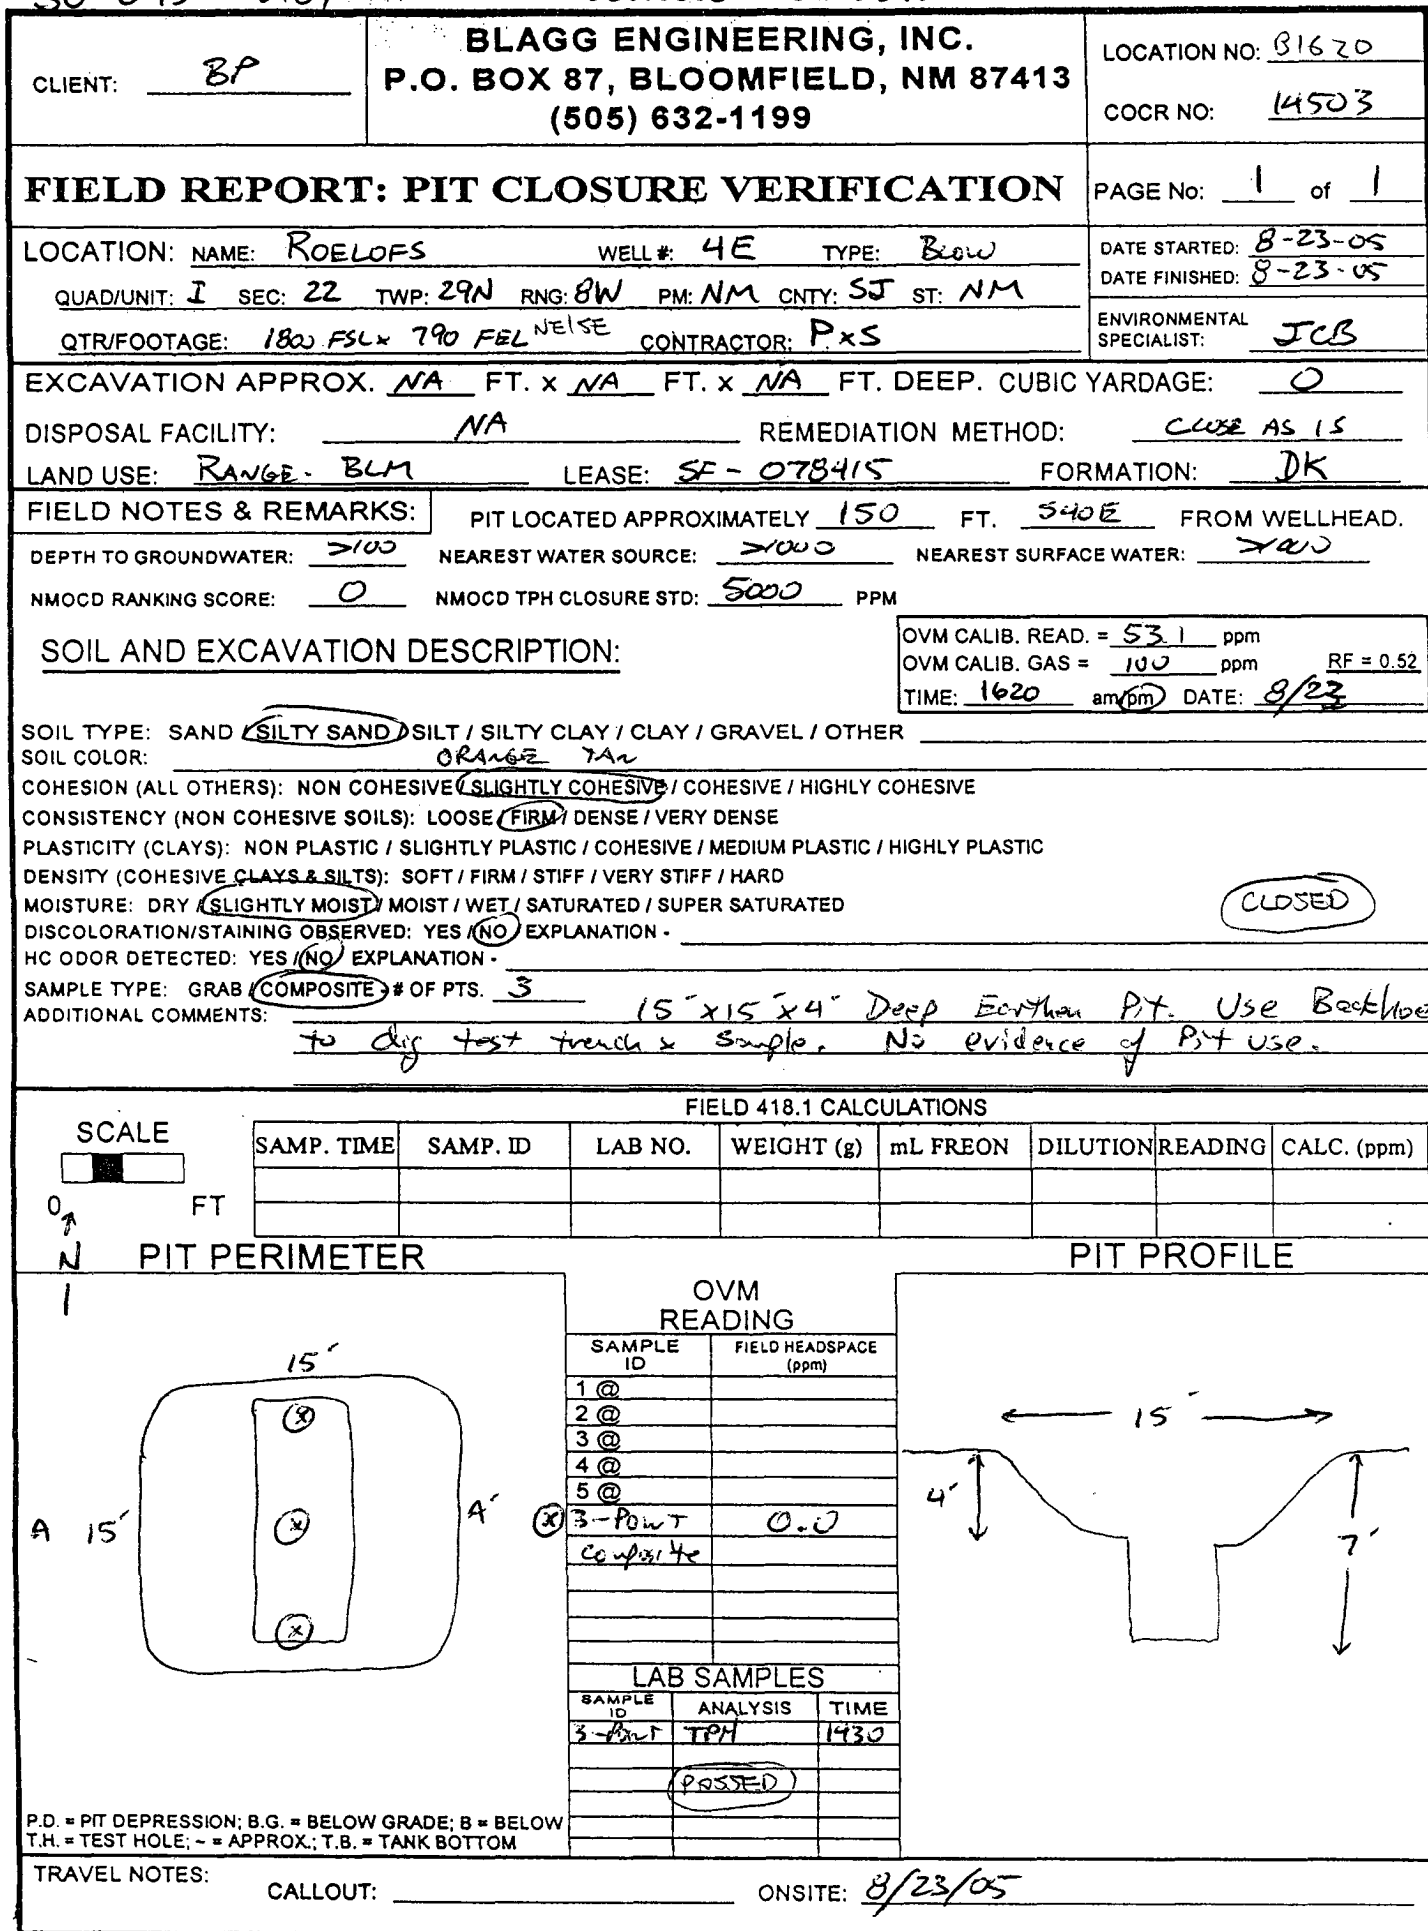 BLAGG ENGINEERING, INC.
P.O. BOX 87, BLOOMFIELD, NM 87413
(505) 632-1199
CLIENT: BP
LOCATION NO: B1620
COCR NO: 14503
FIELD REPORT: PIT CLOSURE VERIFICATION
PAGE No: 1 of 1
LOCATION: NAME: ROELOFS WELL #: 4E TYPE: BLOW
QUAD/UNIT: I SEC: 22 TWP: 29N RNG: 8W PM: NM CNTY: SJ ST: NM
QTR/FOOTAGE: 1800 FSL x 790 FEL NE/SE CONTRACTOR: P x S
DATE STARTED: 8-23-05
DATE FINISHED: 8-23-05
ENVIRONMENTAL
SPECIALIST: JCB
EXCAVATION APPROX. NA FT. x NA FT. x NA FT. DEEP. CUBIC YARDAGE: 0
DISPOSAL FACILITY: NA REMEDIATION METHOD: CLOSE AS IS
LAND USE: RANGE - BLM LEASE: SF - 078415 FORMATION: DK
FIELD NOTES & REMARKS: PIT LOCATED APPROXIMATELY 150 FT. S40E FROM WELLHEAD.
DEPTH TO GROUNDWATER: >100 NEAREST WATER SOURCE: >1000 NEAREST SURFACE WATER: >1000
NMOCD RANKING SCORE: 0 NMOCD TPH CLOSURE STD: 5000 PPM
SOIL AND EXCAVATION DESCRIPTION:
OVM CALIB. READ. = 53.1 ppm
OVM CALIB. GAS = 100 ppm RF = 0.52
TIME: 1620 am/pm DATE: 8/23
SOIL TYPE: SAND / SILTY SAND / SILT / SILTY CLAY / CLAY / GRAVEL / OTHER
SOIL COLOR: ORANGE TAN
COHESION (ALL OTHERS): NON COHESIVE / SLIGHTLY COHESIVE / COHESIVE / HIGHLY COHESIVE
CONSISTENCY (NON COHESIVE SOILS): LOOSE / FIRM / DENSE / VERY DENSE
PLASTICITY (CLAYS): NON PLASTIC / SLIGHTLY PLASTIC / COHESIVE / MEDIUM PLASTIC / HIGHLY PLASTIC
DENSITY (COHESIVE CLAYS & SILTS): SOFT / FIRM / STIFF / VERY STIFF / HARD
MOISTURE: DRY / SLIGHTLY MOIST / MOIST / WET / SATURATED / SUPER SATURATED
CLOSED
DISCOLORATION/STAINING OBSERVED: YES / NO EXPLANATION -
HC ODOR DETECTED: YES / NO EXPLANATION -
SAMPLE TYPE: GRAB / COMPOSITE - # OF PTS. 3
ADDITIONAL COMMENTS: 15' x 15' x 4' Deep Earthen Pit. Use Backhoe
to dig test trench x sample. No evidence of Pit use.
FIELD 418.1 CALCULATIONS
SCALE
0 FT
SAMP. TIME SAMP. ID LAB NO. WEIGHT (g) mL FREON DILUTION READING CALC. (ppm)
N
PIT PERIMETER
PIT PROFILE
OVM
READING
SAMPLE ID FIELD HEADSPACE (ppm)
1 @
2 @
3 @
4 @
5 @
3-Point 0.0
composite
15'
A 15' A'
15'
4'
7'
LAB SAMPLES
SAMPLE ID ANALYSIS TIME
3-Point TPH 1430
PASSED
P.D. = PIT DEPRESSION; B.G. = BELOW GRADE; B = BELOW
T.H. = TEST HOLE; ~ = APPROX.; T.B. = TANK BOTTOM
TRAVEL NOTES:
CALLOUT: ONSITE: 8/23/05